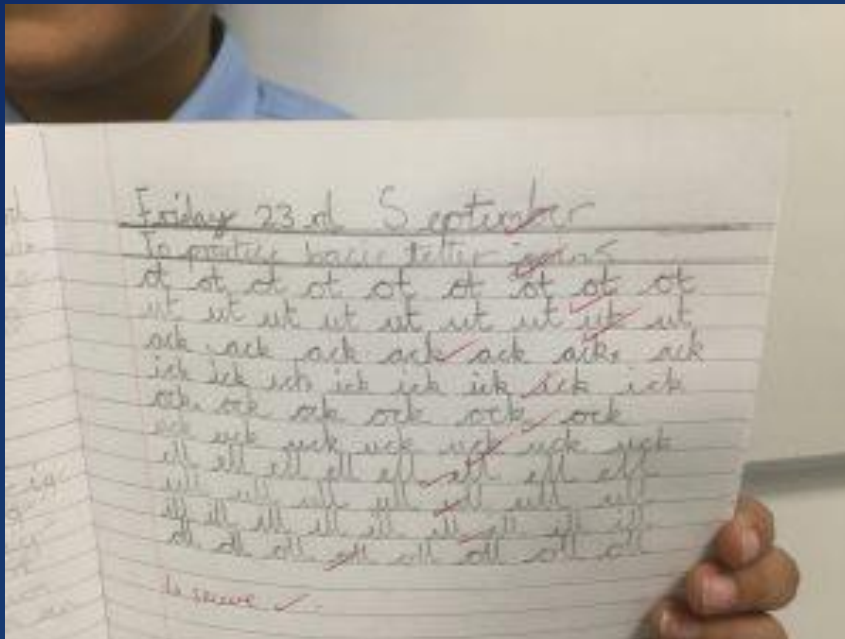 Friday 23rd September
To practice basic letter joins
ot ot ot ot ot ot ot ot ot
ut ut ut ut ut ut ut ut ut
ack ack ack ack ack ack ack
ick ick ick ick ick ick ick ick
ock ock ock ock ock ock
uck uck uck uck uck uck uck
ell ell ell ell ell ell ell
ull ull ull ull ull ull ull
ill ill ill ill ill ill ill ill ill
oll oll oll oll oll oll oll oll
is secure